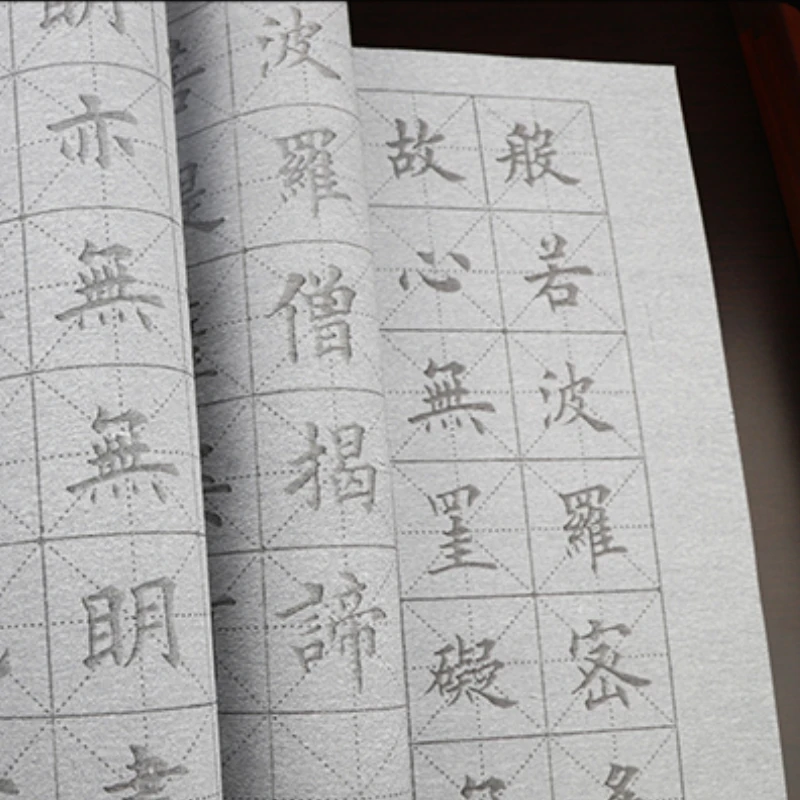 般若波羅密
故心無罣礙
波羅僧揭諦
明亦無無明